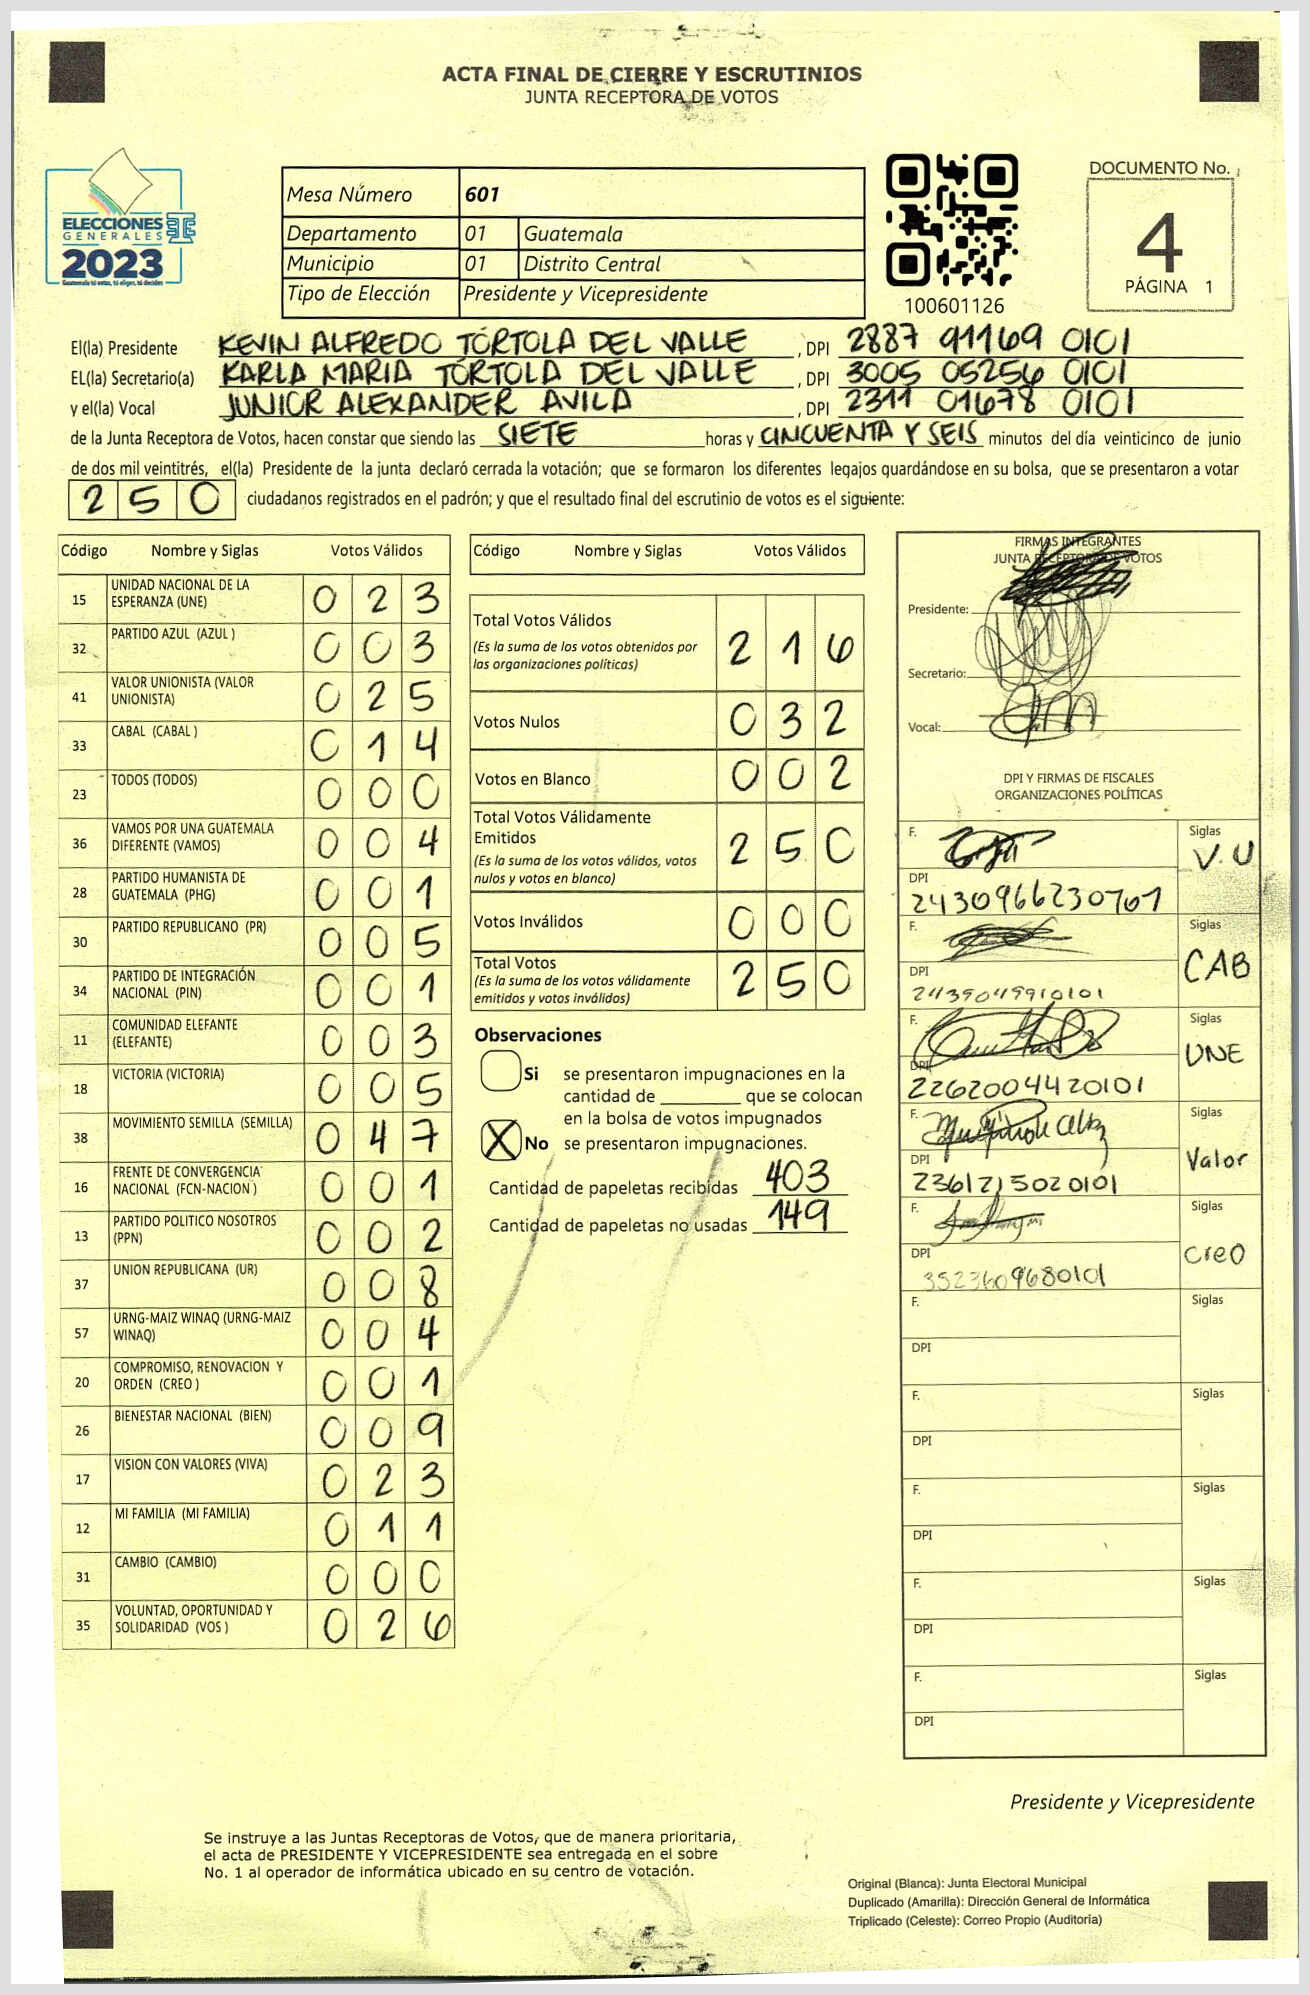 ACTA FINAL DE CIERRE Y ESCRUTINIOS
JUNTA RECEPTORA DE VOTOS
ELECCIONES
GENERALES
2023
Guatemala tú votas, tú eliges, tú decides
Mesa Número 601
Departamento 01 Guatemala
Municipio 01 Distrito Central
Tipo de Elección Presidente y Vicepresidente
100601126
DOCUMENTO No.
4
PÁGINA 1
El(la) Presidente KEVIN ALFREDO TÓRTOLA DEL VALLE , DPI 2887 91169 0101
EL(la) Secretario(a) KARLA MARIA TÓRTOLA DEL VALLE , DPI 3005 05256 0101
y el(la) Vocal JUNIOR ALEXANDER AVILA , DPI 2311 01678 0101
de la Junta Receptora de Votos, hacen constar que siendo las SIETE horas y CINCUENTA Y SEIS minutos del día veinticinco de junio
de dos mil veintitrés, el(la) Presidente de la junta declaró cerrada la votación; que se formaron los diferentes legajos guardándose en su bolsa, que se presentaron a votar
250 ciudadanos registrados en el padrón; y que el resultado final del escrutinio de votos es el siguiente:
Código Nombre y Siglas Votos Válidos
15 UNIDAD NACIONAL DE LA ESPERANZA (UNE) 023
32 PARTIDO AZUL (AZUL ) 003
41 VALOR UNIONISTA (VALOR UNIONISTA) 025
33 CABAL (CABAL ) 014
23 TODOS (TODOS) 000
36 VAMOS POR UNA GUATEMALA DIFERENTE (VAMOS) 004
28 PARTIDO HUMANISTA DE GUATEMALA (PHG) 001
30 PARTIDO REPUBLICANO (PR) 005
34 PARTIDO DE INTEGRACIÓN NACIONAL (PIN) 001
11 COMUNIDAD ELEFANTE (ELEFANTE) 003
18 VICTORIA (VICTORIA) 005
38 MOVIMIENTO SEMILLA (SEMILLA) 047
16 FRENTE DE CONVERGENCIA NACIONAL (FCN-NACION ) 001
13 PARTIDO POLITICO NOSOTROS (PPN) 002
37 UNION REPUBLICANA (UR) 008
57 URNG-MAIZ WINAQ (URNG-MAIZ WINAQ) 004
20 COMPROMISO, RENOVACION Y ORDEN (CREO ) 001
26 BIENESTAR NACIONAL (BIEN) 009
17 VISION CON VALORES (VIVA) 023
12 MI FAMILIA (MI FAMILIA) 011
31 CAMBIO (CAMBIO) 000
35 VOLUNTAD, OPORTUNIDAD Y SOLIDARIDAD (VOS ) 026
Código Nombre y Siglas Votos Válidos
Total Votos Válidos 216
(Es la suma de los votos obtenidos por
las organizaciones políticas)
Votos Nulos 032
Votos en Blanco 002
Total Votos Válidamente
Emitidos 250
(Es la suma de los votos válidos, votos
nulos y votos en blanco)
Votos Inválidos 000
Total Votos 250
(Es la suma de los votos válidamente
emitidos y votos inválidos)
Observaciones
Si se presentaron impugnaciones en la
cantidad de ________ que se colocan
en la bolsa de votos impugnados
X No se presentaron impugnaciones.
Cantidad de papeletas recibidas 403
Cantidad de papeletas no usadas 149
FIRMAS INTEGRANTES
JUNTA RECEPTORA DE VOTOS
Presidente:
Secretario:
Vocal:
DPI Y FIRMAS DE FISCALES
ORGANIZACIONES POLÍTICAS
F. Siglas V.U
DPI 2430966230701
F. Siglas CAB
DPI 2439049910101
F. Siglas UNE
DPI 2262004420101
F. Siglas Valor
DPI 2361215020101
F. Siglas CREO
DPI 3523609680101
F. Siglas
DPI
F. Siglas
DPI
F. Siglas
DPI
F. Siglas
DPI
F. Siglas
DPI
Presidente y Vicepresidente
Se instruye a las Juntas Receptoras de Votos, que de manera prioritaria,
el acta de PRESIDENTE Y VICEPRESIDENTE sea entregada en el sobre
No. 1 al operador de informática ubicado en su centro de votación.
Original (Blanca): Junta Electoral Municipal
Duplicado (Amarilla): Dirección General de Informática
Triplicado (Celeste): Correo Propio (Auditoría)